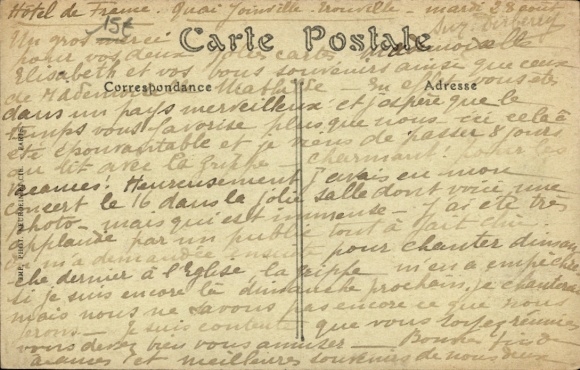 Hôtel de France. Quai Joinville. Trouville - mardi 28 août
15f
Carte Postale
Correspondance
Adresse
Un gros merci
pour vos deux jolies cartes Mademoiselle
Elisabeth et vos bons souvenirs ainsi que ceux
de Mademoiselle Mathilde - En effet vous êtes
dans un pays merveilleux et j'espère que le
temps vous favorise plus que nous - ici cela a
été épouvantable et je viens de passer 8 jours
au lit avec la grippe - charmant pour les
vacances! Heureusement j'avais eu mon
concert le 16 dans la jolie salle dont voici une
photo - mais qui est immense - J'ai été très
applaudie par un public tout à fait chic.
On m'a demandée ensuite pour chanter diman
che dernier à l'Eglise, la grippe m'en a empêchée
si je suis encore là dimanche prochain, je chanterai
mais nous ne savons pas encore ce que nous
ferons - Je suis contente que vous soyez réunies
vous devez bien vous amuser - Bonne fin de
vacances et meilleurs souvenirs de nous deux